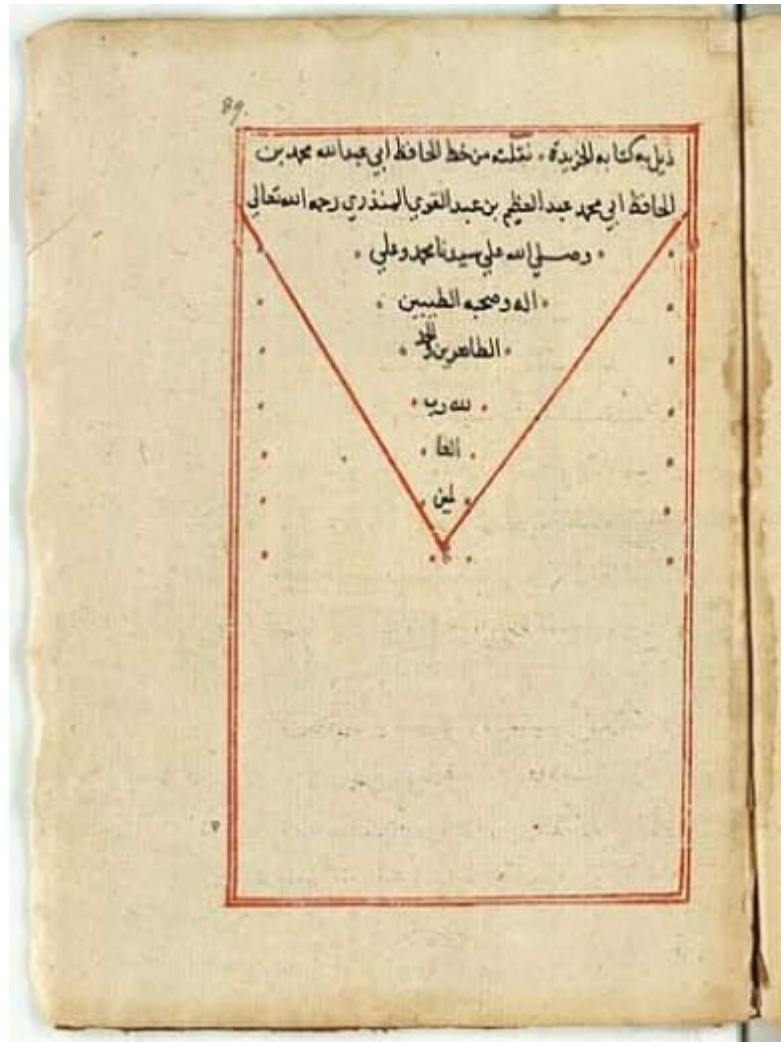 89.
ذيل به كتابه الخريدة ٠ نقلته من خط الحافظ ابي عبد الله محمد بن
الحافظ ابي محمد عبد العظيم بن عبد القوي المنذري رحمه الله تعالي
وصلي الله علي سيدنا محمد وعلي
اله وصحبه الطيبين
الطاهرين والحمد
لله رب
العا
لمين